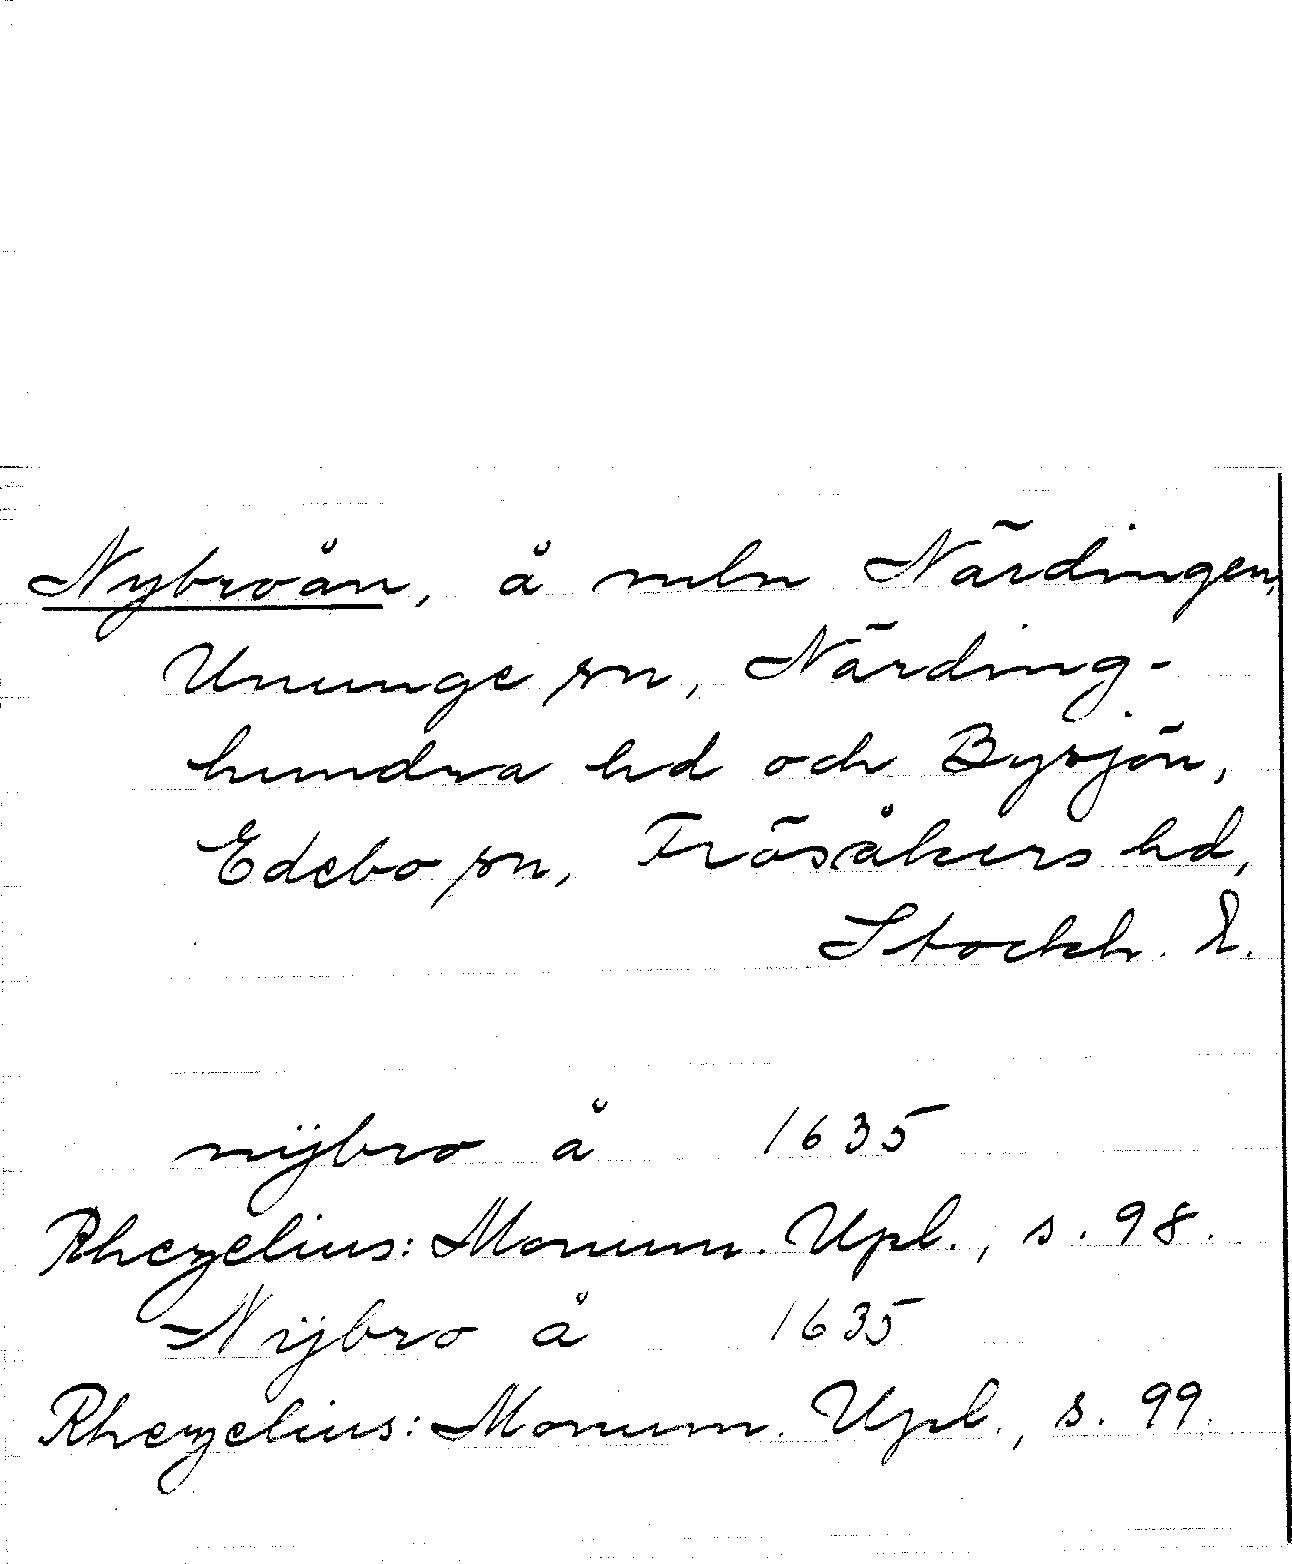 Nybroån, å mln Närdingen,
Ununge sn, Närding-
hundra hd och Bysjön,
Edebo sn, Frösåkers hd,
Stockh. L.
nÿbro å 1635
Rhezelius: Monum. Upl., s. 98.
Nÿbro å 1635
Rhezelius: Monum. Upl., s. 99.